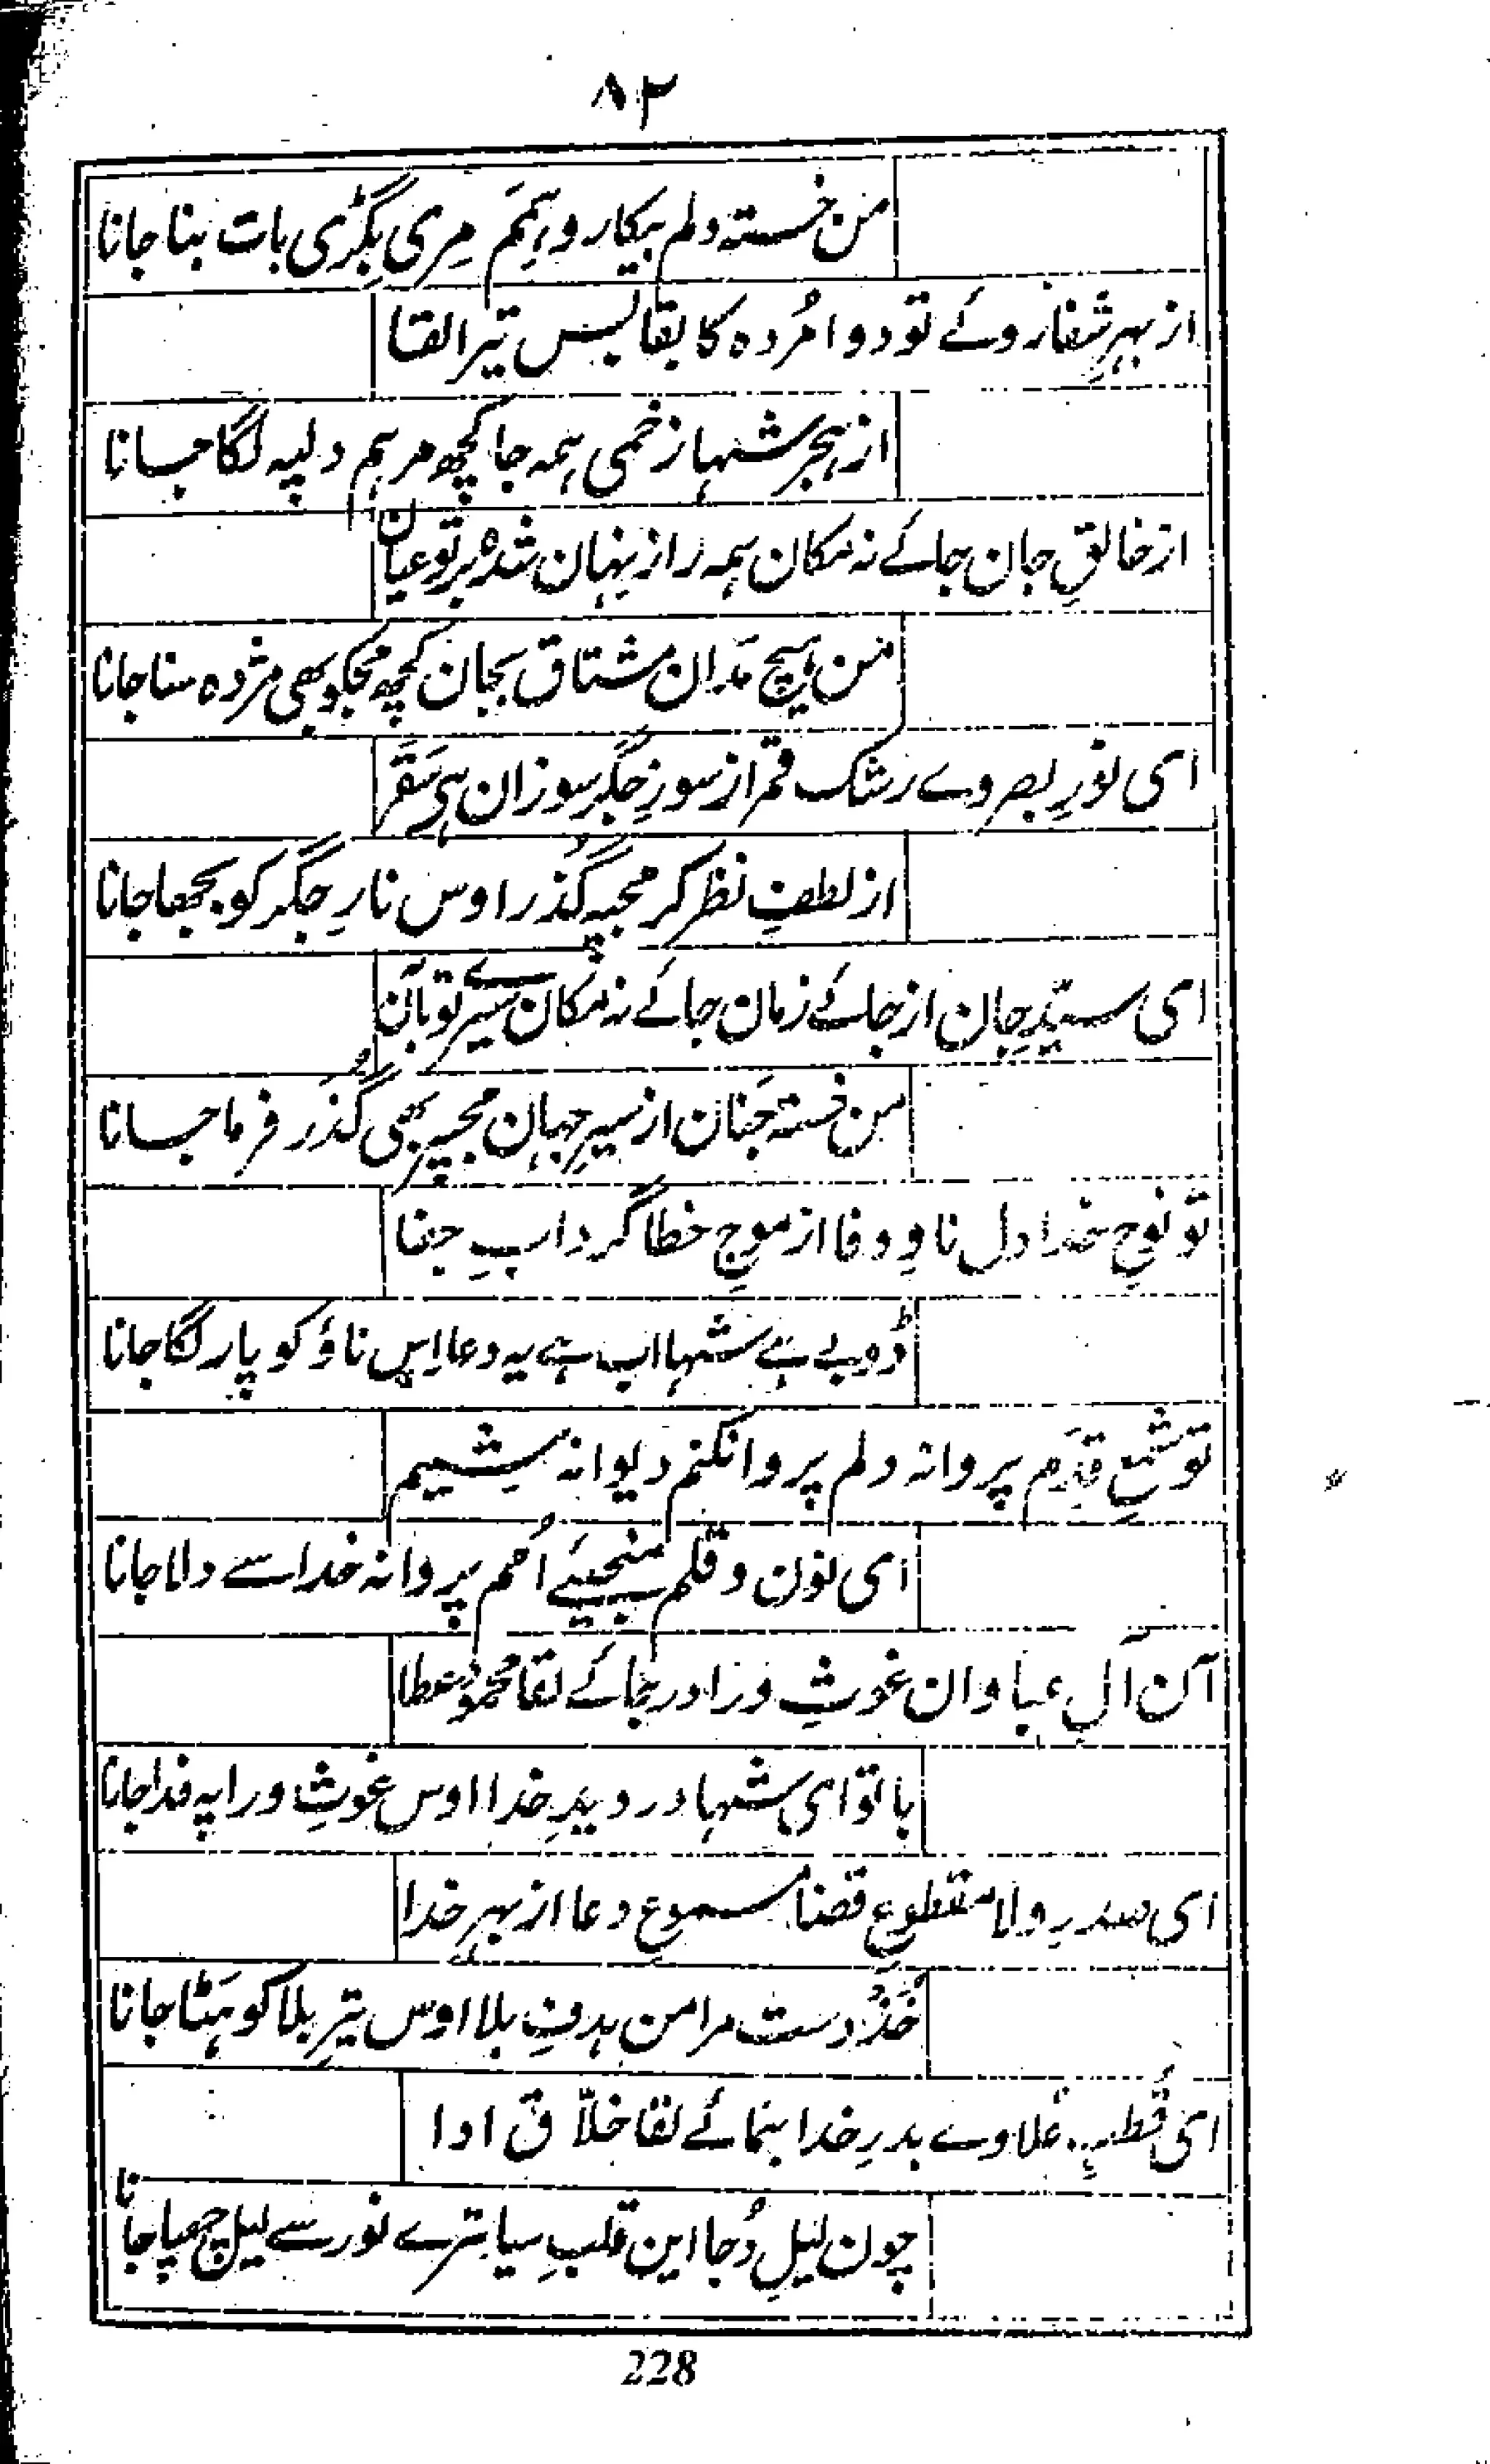 ۸۲
من خستہ دلم بیکار و ہِمَم مِری بِگڑی بات بنا جانا
از بہرِ شِفا روئے تو دوا مُردہ کا بقا بس تیرا لقا
از ہجر شہا زخمی ہمہ جا کچھ مرہم دلپہ لگا جانا
از خالقِ جان جائے نہ مکان ہمہ راز نہان شدہ بر تو عیان
من ہیچ مَدان مشتاق بجان کچھ مجکو بھی مژدہ سنا جانا
ای نورِ بصر وے رشک قمر از سوزِ جگر سوزان ہی سَقَر
از لطفِ نظر کر مجپہ گُذر اوس نارِ جگر کو بجھا جانا
ای سیّدِ جان از جائے زمان جائے نہ مکان سیرے تو بآن
من خستہ جَنان از سیرِ جہان مجپر بھی گُذَر فرما جانا
تو نوحِ خدا دل ناوِ وفا از موجِ خطا گردابِ جفا
ڈوبے ہے شہا اب ہے یہ دعا اِس ناؤ کو پار لگا جانا
تو شمعِ قِدَم پروانہ دلم پروا نکنم دیوانہ شیم
ای نون و قلم منجیئے اُمم پروانہ خدا سے دلا جانا
آن آلِ عبا وان غوثِ ورا در جائے لقا محمودِ عطا
با تو ای شہا در دیدِ خدا اوس غوثِ ورا پہ فدا جانا
ای صدرِ ولا مقطوعِ قضا مسموعِ دعا از بہرِ خدا
خُذْ دست مرا من ہدفِ بلا اوس تیرِ بلا کو ہَٹا جانا
ای قُطبِ عُلا وے بدرِ خدا بنمائے لقا خلّاق ادا
چون لیلِ دُجا این قلبِ سیا تِرے نور سے لیل چھپا جانا
228